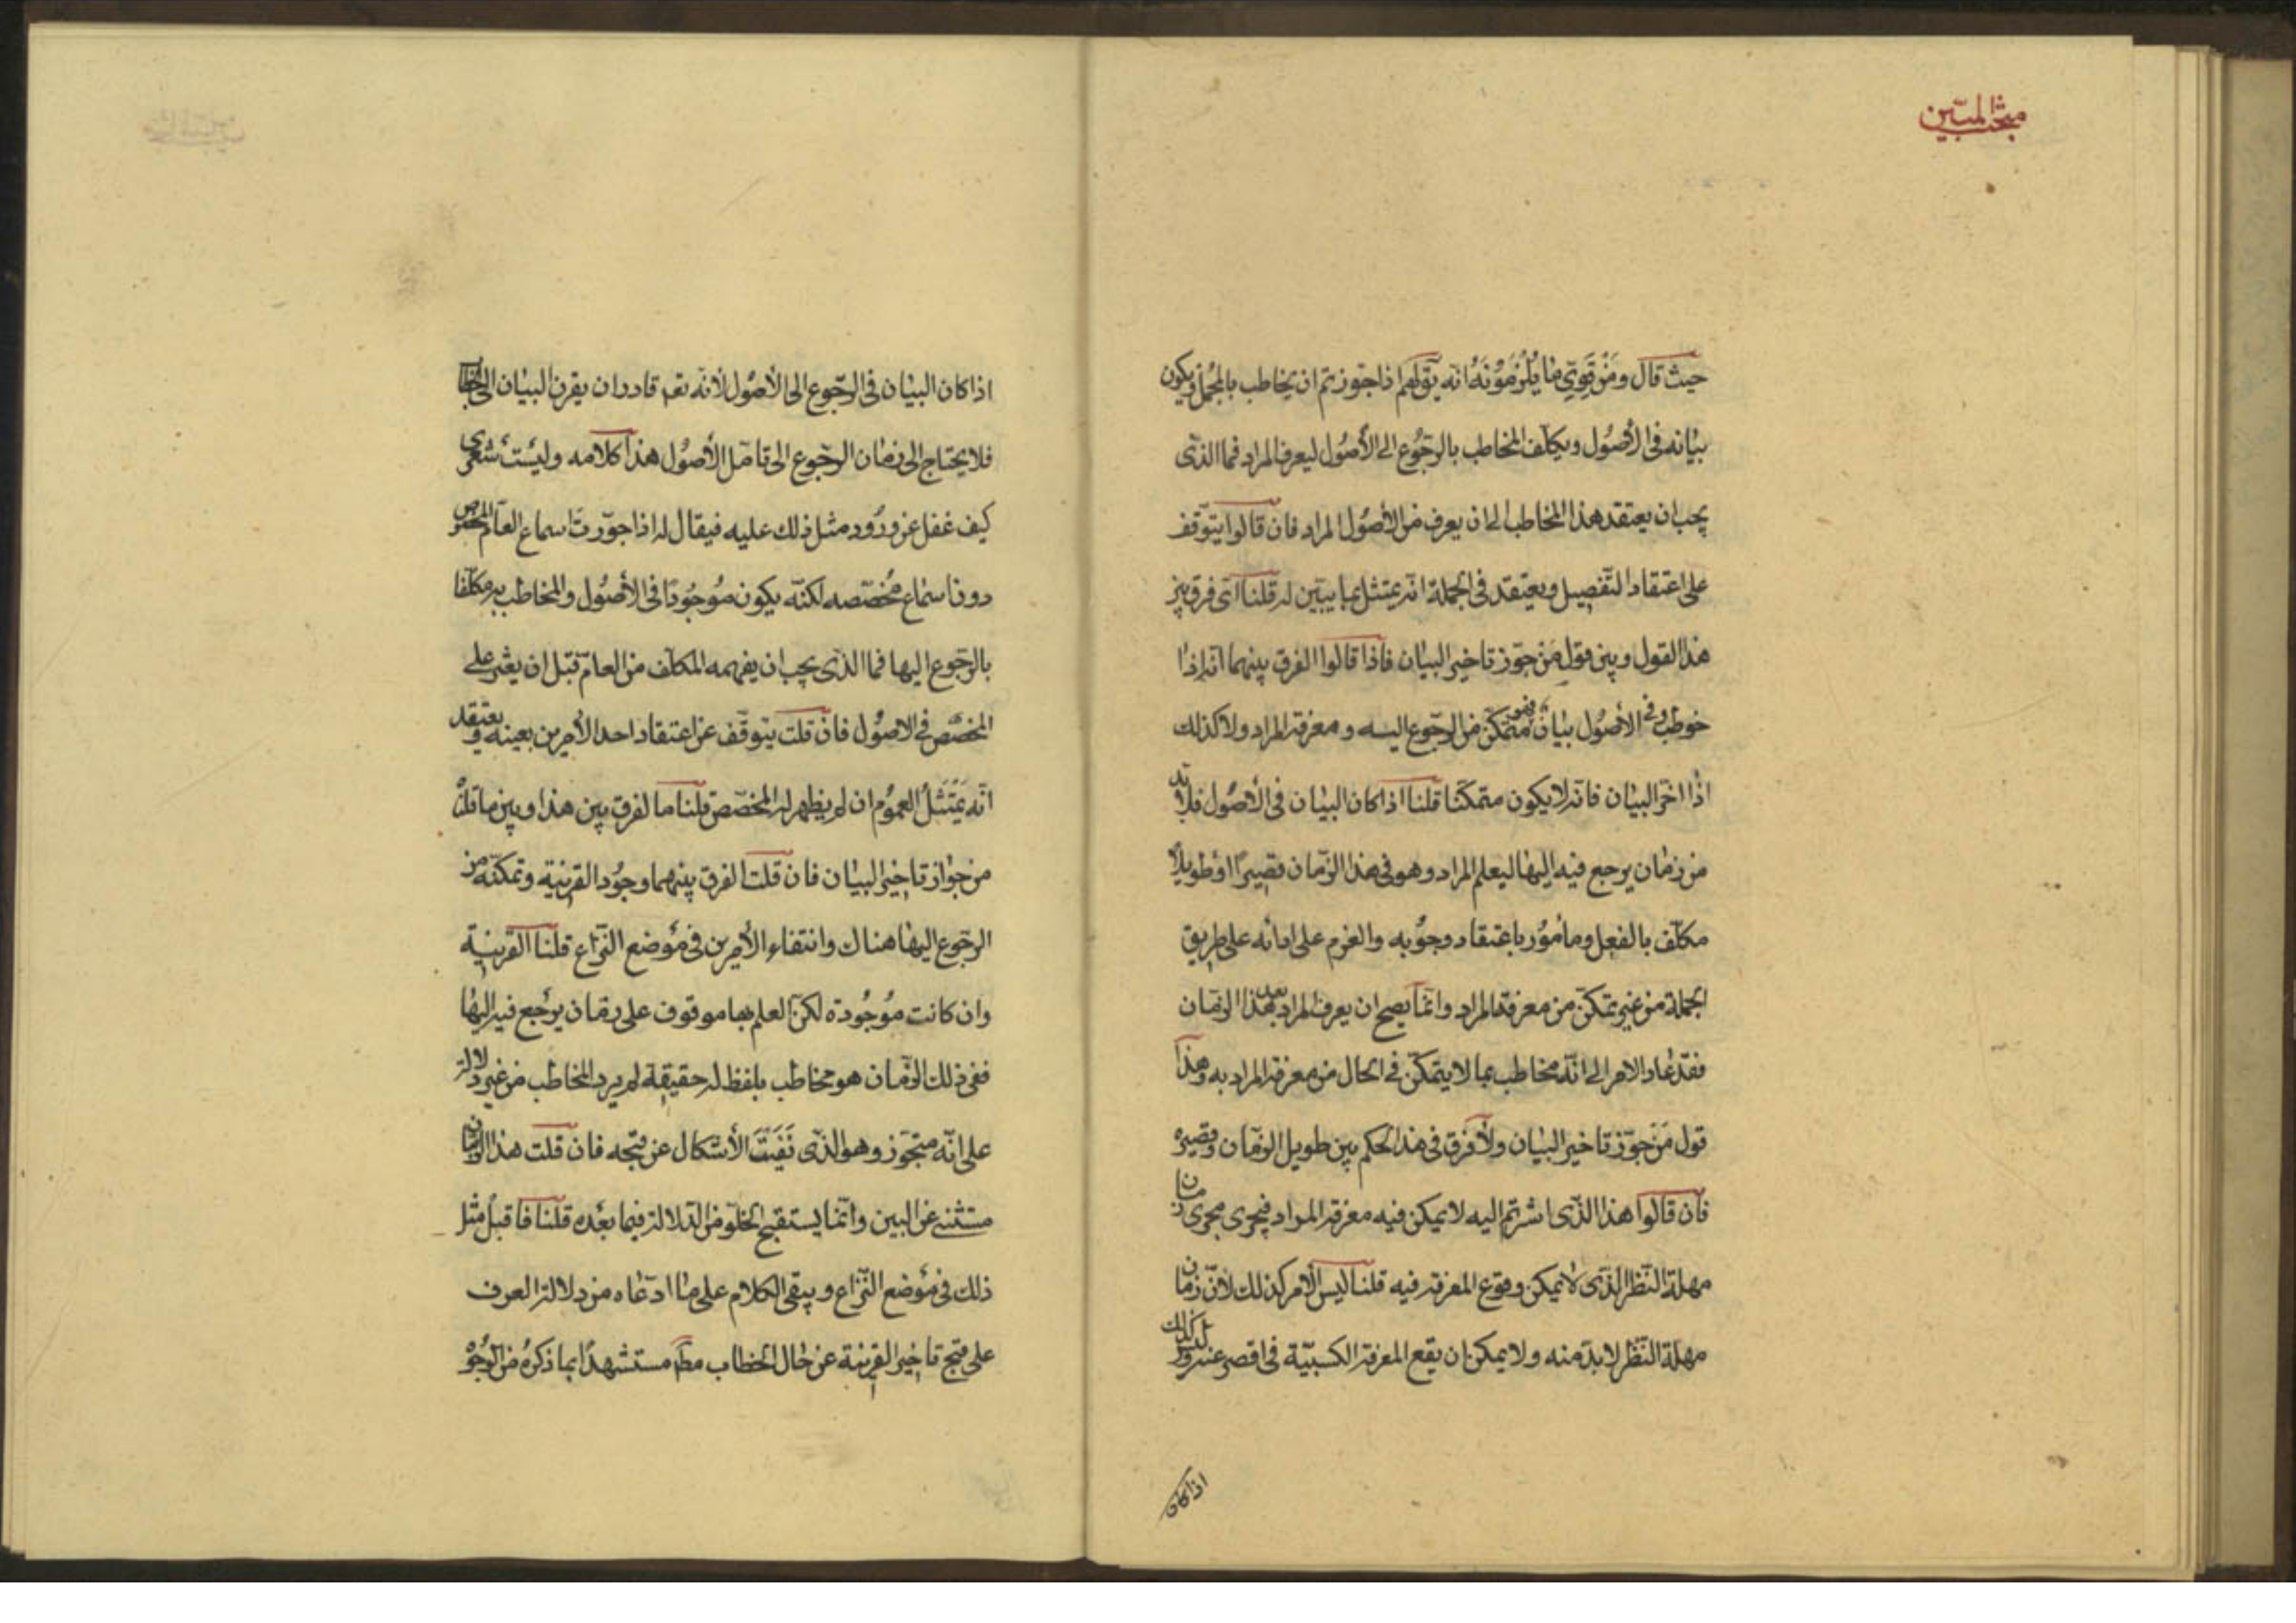 مبحث المبيّن
حيث قال ومن قوي ما يلزمونه انه يق لهم اذا جوزتم ان يخاطب بالمجمل ويكون
بيانه في الأصول ويكلف المخاطب بالرجوع الى الأصول ليعرف المراد فما الذي
يجب ان يعتقد هذا المخاطب الى ان يعرف من الأصول المراد فان قالوا يتوقف
على اعتقاد التفصيل ويعتقد في الجملة انه يمتثل ما يبين له قلنا اي فرق بين
هذا القول وبين قول من جوز تاخير البيان فاذا قالوا الفرق بينهما انه اذا
خوطب وفي الأصول بيان فهو متمكن من الرجوع اليه ومعرفة المراد ولا كذلك
اذا اخر البيان فانه لا يكون متمكنا قلنا اذا كان البيان في الأصول فلا بد
من زمان يرجع فيه اليها ليعلم المراد وهو في هذا الزمان قصيرا او طويلا
مكلف بالفعل ومأمور باعتقاد وجوبه والعزم على ادائه على طريق
الجملة من غير تمكن من معرفة المراد وانما يصح ان يعرف المراد بعد هذا الزمان
فقد عاد الامر الى انه مخاطب بما لا يتمكن في الحال من معرفة المراد به وهذا
قول من جوز تاخير البيان ولا فرق في هذا الحكم بين طويل الزمان وقصيره
فان قالوا هذا الذي اشرتم اليه لا يمكن فيه معرفة المراد فيجري مجرى زمان
مهلة النظر الذي لا يمكن وقوع المعرفة فيه قلنا ليس الامر كذلك لأن زمان
مهلة النظر لا بد منه ولا يمكن ان يقع المعرفة الكسبية في اقصر عنه وليس كذلك
اذا كان
اذا كان البيان في الرجوع الى الأصول لأنه تعم قادر ان يقرن البيان الى الخطاب
فلا يحتاج الى زمان الرجوع الى تامل الأصول هذا كلامه وليت شعري
كيف غفل عن ورود مثل ذلك عليه فيقال له اذا جورت اسماع العام المخصوص
دون اسماع مخصصه لكنه يكون موجودا في الأصول والمخاطب به مكلفا
بالرجوع اليها فما الذي يجب ان يفهمه المكلف من العام قبل ان يعثر على
المخصص في الاصول فان قلت يتوقف عن اعتقاد احد الأمرين بعينه ويعتقد
انه يمتثل العموم ان لم يظهر له المخصص قلنا ما الفرق بين هذا وبين ما قلت
من جواز تاخير البيان فان قلت الفرق بينهما وجود القرينة وتمكنه من
الرجوع اليها هناك وانتفاء الأمرين في موضع النزاع قلنا القرينة
وان كانت موجودة لكن العلم بها موقوف على زمان يرجع فيه اليها
ففي ذلك الزمان هو مخاطب بلفظ له حقيقة لم يرد المخاطب من غير دلالة
على انه متجوز وهو الذي نفيت الأشكال عن قبحه فان قلت هذا الزمان
مستثنى عن البين وانما يستقبح الخلو من الدلالة فيما بعده قلنا فاقبل مثل
ذلك في موضع النزاع ويبقى الكلام على ما ادعاه من دلالة العرف
على قبح تاخير القرينة عن حال الخطاب مط مستشهدا بما ذكره من الوجوه